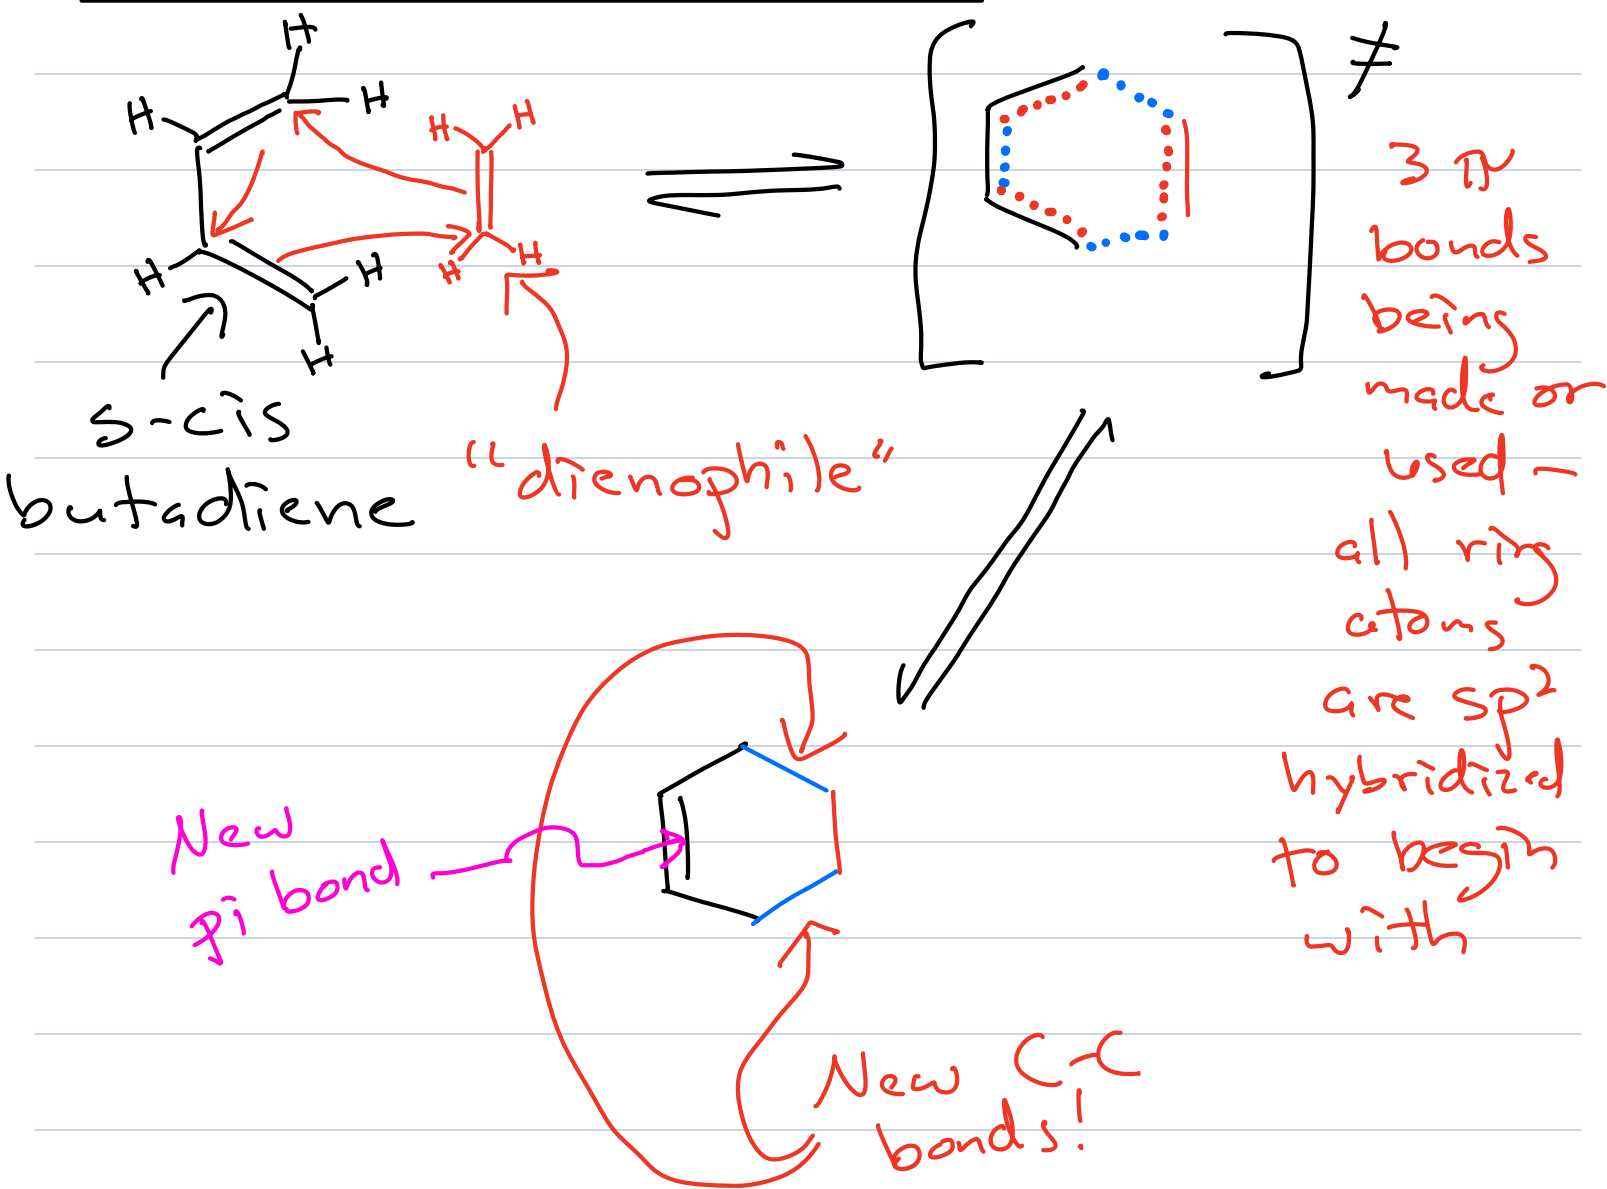 H
H
H
H
H
H
H
H
H
H
≠
s-cis
butadiene
"dienophile"
3 π
bonds
being
made or
used —
all ring
atoms
are sp²
hybridized
to begin
with
New
pi bond
New C-C
bonds!